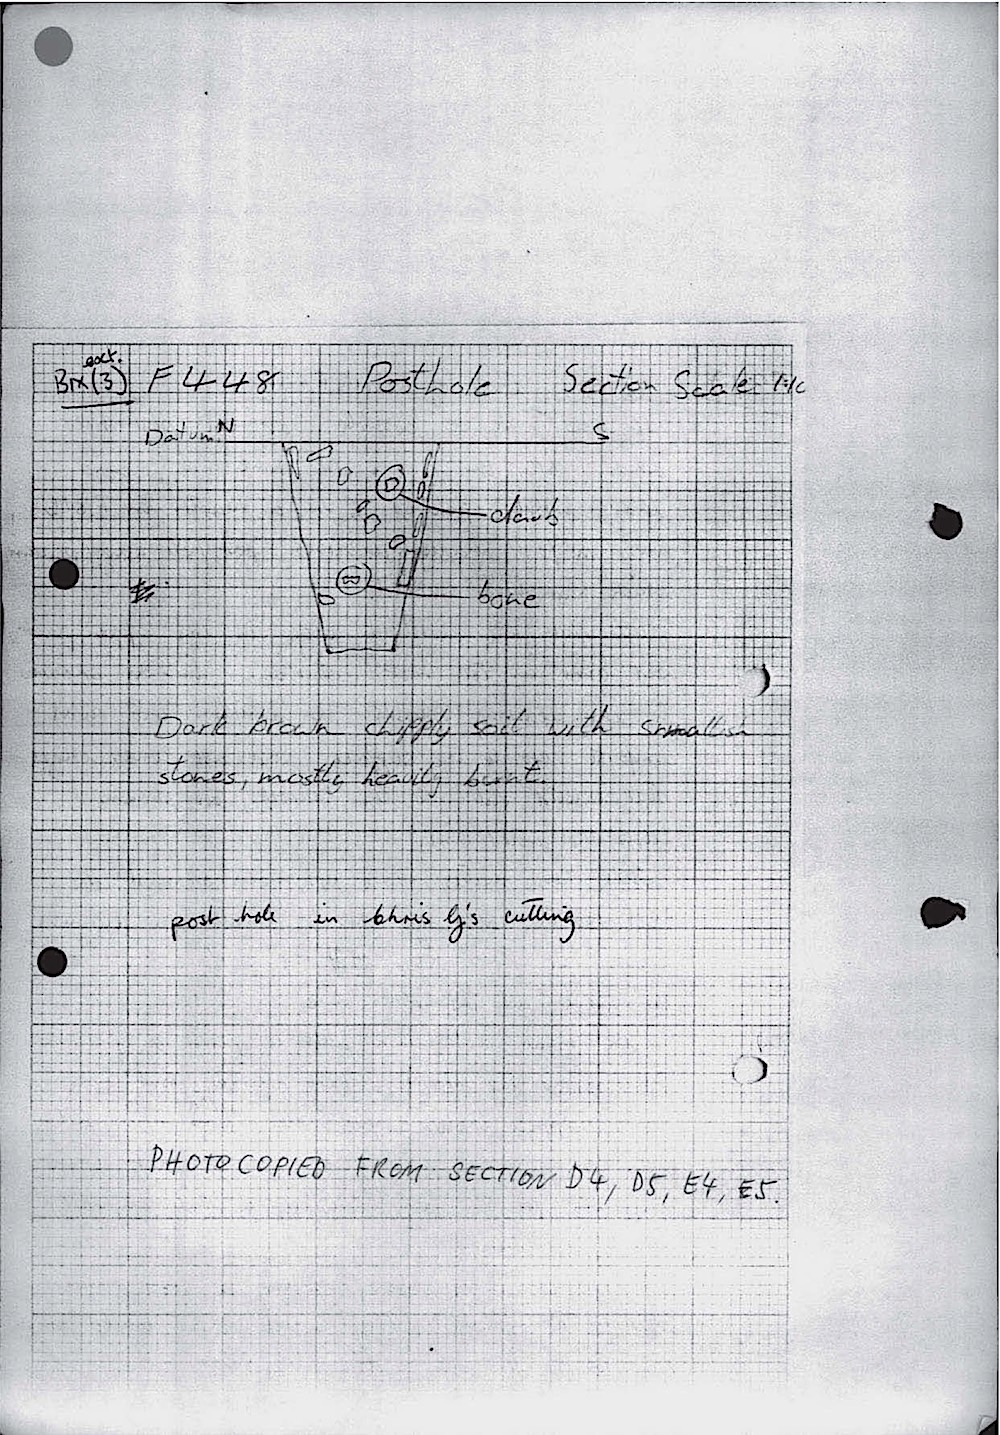 ext.
Brx(3) F448 Posthole Section Scale 1:10
Datum N S
daub
bone
Dark brown chipply soil with smallish
stones, mostly heavily burnt.
post hole in Chris G's cutting
PHOTOCOPIED FROM SECTION D4, D5, E4, E5.